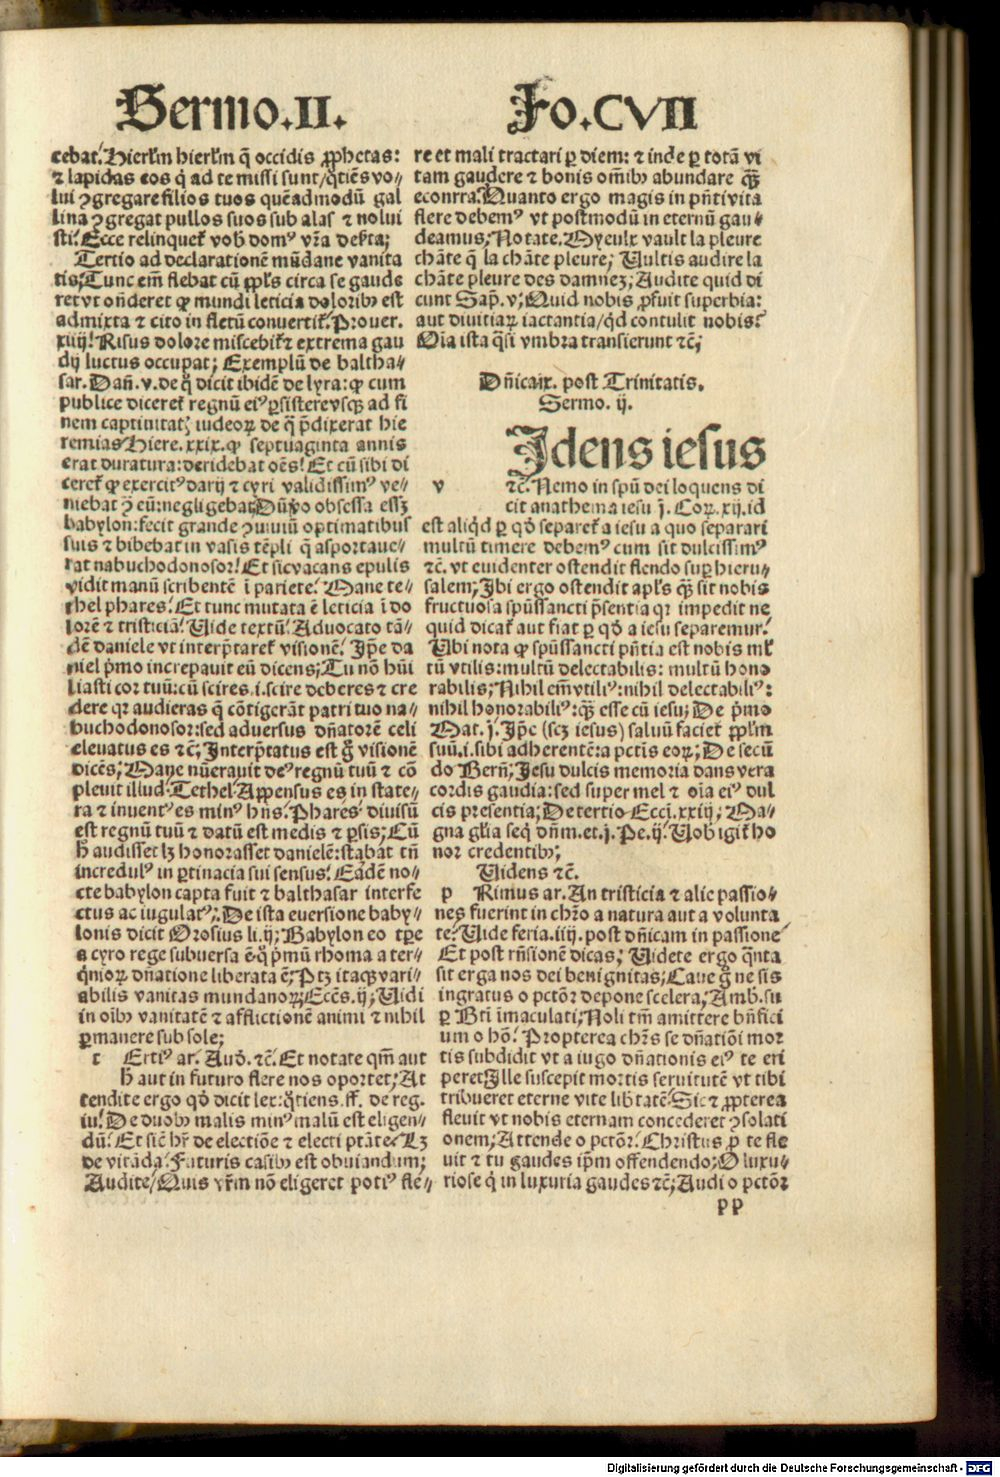 Sermo.II.
Fo.CVII
cebat. Hierl'm hierl'm q̄ occidis ꝓphetas:
⁊ lapidas eos q̇ ad te missi sunt/q̊tiēs vo⸗
lui ꝯgregare filios tuos quēadmodū gal
lina ꝯgregat pullos suos sub alas ⁊ nolui
sti. Ecce relinquet᷑ vob̄ domꝰ vr̄a des̄ta;
Tertio ad declarationē mūdane vanita
tis; Tunc em̄ flebat cū ppl's circa se gaude
ret vt on̄deret ꝙ mundi leticia dolorib⁹ est
admixta ⁊ cito in fletū convertit᷑. Prouer.
xiiij. Risus dolore miscebit᷑ ⁊ extrema gau
dij luctus occupat; Exemplū de baltha⸗
sar. Dan̄. v. de q̊ dicit ibidē de lyra: ꝙ cum
publice diceret᷑ regnū eiꝰ ꝑsistere vsq̨ ad fi
nem captiuitatꝭ iudeoꝝ de q̊ p̄dixerat hie
remias Hiere. xxix. ꝙ septuaginta annis
erat duratura: deridebat oēs. Et cū sibi di
ceret᷑ ꝙ exercitꝰ darij ⁊ cyri validissimꝰ ve⸗
niebat ꝯ eū: negligebat; Dū v̊o obsessa essꝫ
babylon: fecit grande ꝯuiuiū optimatibus
suis ⁊ bibebat in vasis tēpli q̄ asportaue⸗
rat nabuchodonosor. Et sic vacans epulis
vidit manū scribentē ī pariete. Mane te⸗
chel phares. Et tunc mutata ē leticia ī do
lorē ⁊ tristiciā. Uide textū. Aduocato tā⸗
dē daniele vt interp̄taret᷑ visionē. Ip̄e da
niel p̄mo increpauit eū dicens; Tu nō hūi
liasti cor tuū: cū scires .i. scire deberes ⁊ cre
dere qꝛ audieras q̄ cōtigerāt patri tuo na⸗
buchodonosor: sed aduersus dn̄atorē celi
eleuatus es ⁊c̄; Interp̄tatus est g̊ visionē
dicēs; Mane nūerauit deꝰ regnū tuū ⁊ cō
pleuit illud. Techel. Appensus es in state⸗
ra ⁊ inuentꝰ es minꝰ hn̄s. Phares. diuisū
est regnū tuū ⁊ datū est medis ⁊ ꝑsis; Cū
h̄ audisset lꝫ honorasset danielē: stabat tn̄
incredulꝰ in ꝑtinacia sui sensus. Eadē no⸗
cte babylon capta fuit ⁊ balthasar interfe
ctus ac iugulatꝰ;. De ista euersione baby⸗
lonis dicit Orosius li. ij; Babylon eo tp̄re
a cyro rege subuersa ē. q̊ p̄mū rhoma a ter⸗
q̇nioꝝ dn̄atione liberata ē; Ptꝫ itaq̨ vari⸗
abilis vanitas mundanoꝝ; Ecc̄s. ij; Uidi
in oīb⁹ vanitatē ⁊ afflictionē animi ⁊ nihil
ꝑmanere sub sole;
t Ertiꝰ ar. Aud̄. ⁊c̄. Et notate qm̄ aut
h̄ aut in futuro flere nos oportet; At
tendite ergo qd̄ dicit lex: q̊tiens. ff. de reg.
iu. De duob⁹ malis minꝰ malū est eligen⸗
dū. Et sic hr̄ de electiōe ⁊ electi ptāte. Lꝫ
de vitāda. Futuris casib⁹ est obuiandum;
Audite/Quis vr̄m nō eligeret potiꝰ fle⸗
re et mali tractari ꝑ diem: ⁊ inde ꝑ totā vi
tam gaudere ⁊ bonis om̄ib⁹ abundare q̄ꝫ
econtra. Quanto ergo magis in pn̄ti vita
flere debemꝰ vt postmodū in eternū gau⸗
deamus; Notate. Myeulx vault la pleure
chāte q̄ la chāte pleure; Uultis audire la
chāte pleure des damnez; Audite quid di
cunt Sap̄. v; Quid nobis ꝓfuit superbia:
aut diuitiaꝝ iactantia/qd̄ contulit nobis.
Oīa ista q̄si vmbra transierunt ⁊c̄;
Dn̄ica ix. post Trinitatis.
Sermo. ij.
v Idens iesus
⁊c̄. Nemo in spū dei loquens di
cit anathema iesu j. Coꝝ. xij. id
est aliqd̄ ꝑ qd̄ separet᷑ a iesu a quo separari
multū timere debemꝰ cum sit dulcissimꝰ
⁊c̄. vt euidenter ostendit flendo suꝑ hieru⸗
salem; Ibi ergo ostendit apl's q̄ꝫ sit nobis
fructuosa spūssancti p̄sentia qꝛ impedit ne
quid dicat᷑ aut fiat ꝑ qd̄ a iesu separemur.
Ubi nota ꝙ spūssancti pn̄tia est nobis ml᷑
tū vtilis: multū delectabilis: multū hono
rabilis; Nihil em̄ vtiliꝰ: nihil delectabiliꝰ:
nihil honorabiliꝰ: q̄ꝫ esse cū iesu; De p̄mo
Mat. j. Ip̄e (scꝫ iesus) saluū faciet ppl'm
suū .i. sibi adherentē: a pctīs eoꝝ; De secū
do Bern̄; Jesu dulcis memoria dans vera
cordis gaudia: sed super mel ⁊ oīa eiꝰ dul
cis presentia; De tertio Ecci. xxiij; Ma⸗
gna gl'ia seq̇ dn̄m. et. j. Pe. ij. Uob̄ igit᷑ ho
nor credentib⁹;
Uidens ⁊c̄.
p Rimus ar. An tristicia ⁊ alie passio⸗
nes fuerint in chr̄o a natura aut a volunta
te. Uide feria. iiij. post dn̄icam in passione
Et post rn̄sionē dicas; Uidete ergo q̄nta
sit erga nos dei benignitas; Caue g̊ ne sis
ingratus o pctōr depone scelera; Amb. su
ꝑ Bt̄i īmaculati; Noli tm̄ amittere bn̄fici
um o hō. Propterea chr̄s se dn̄atiōi mor
tis subdidit vt a iugo dn̄ationis eiꝰ te eri
peret Ille suscepit mortis seruitutē vt tibi
tribueret eterne vite lib̄tatē. Sic ⁊ ꝓpterea
fleuit vt nobis eternam concederet ꝯsolati
onem; Attende o pctōr. Christus ꝓ te fle
uit ⁊ tu gaudes ip̄m offendendo; O luxu⸗
riose q̇ in luxuria gaudes ⁊c̄; Audi o pctōr
pp
Digitalisierung gefördert durch die Deutsche Forschungsgemeinschaft - DFG